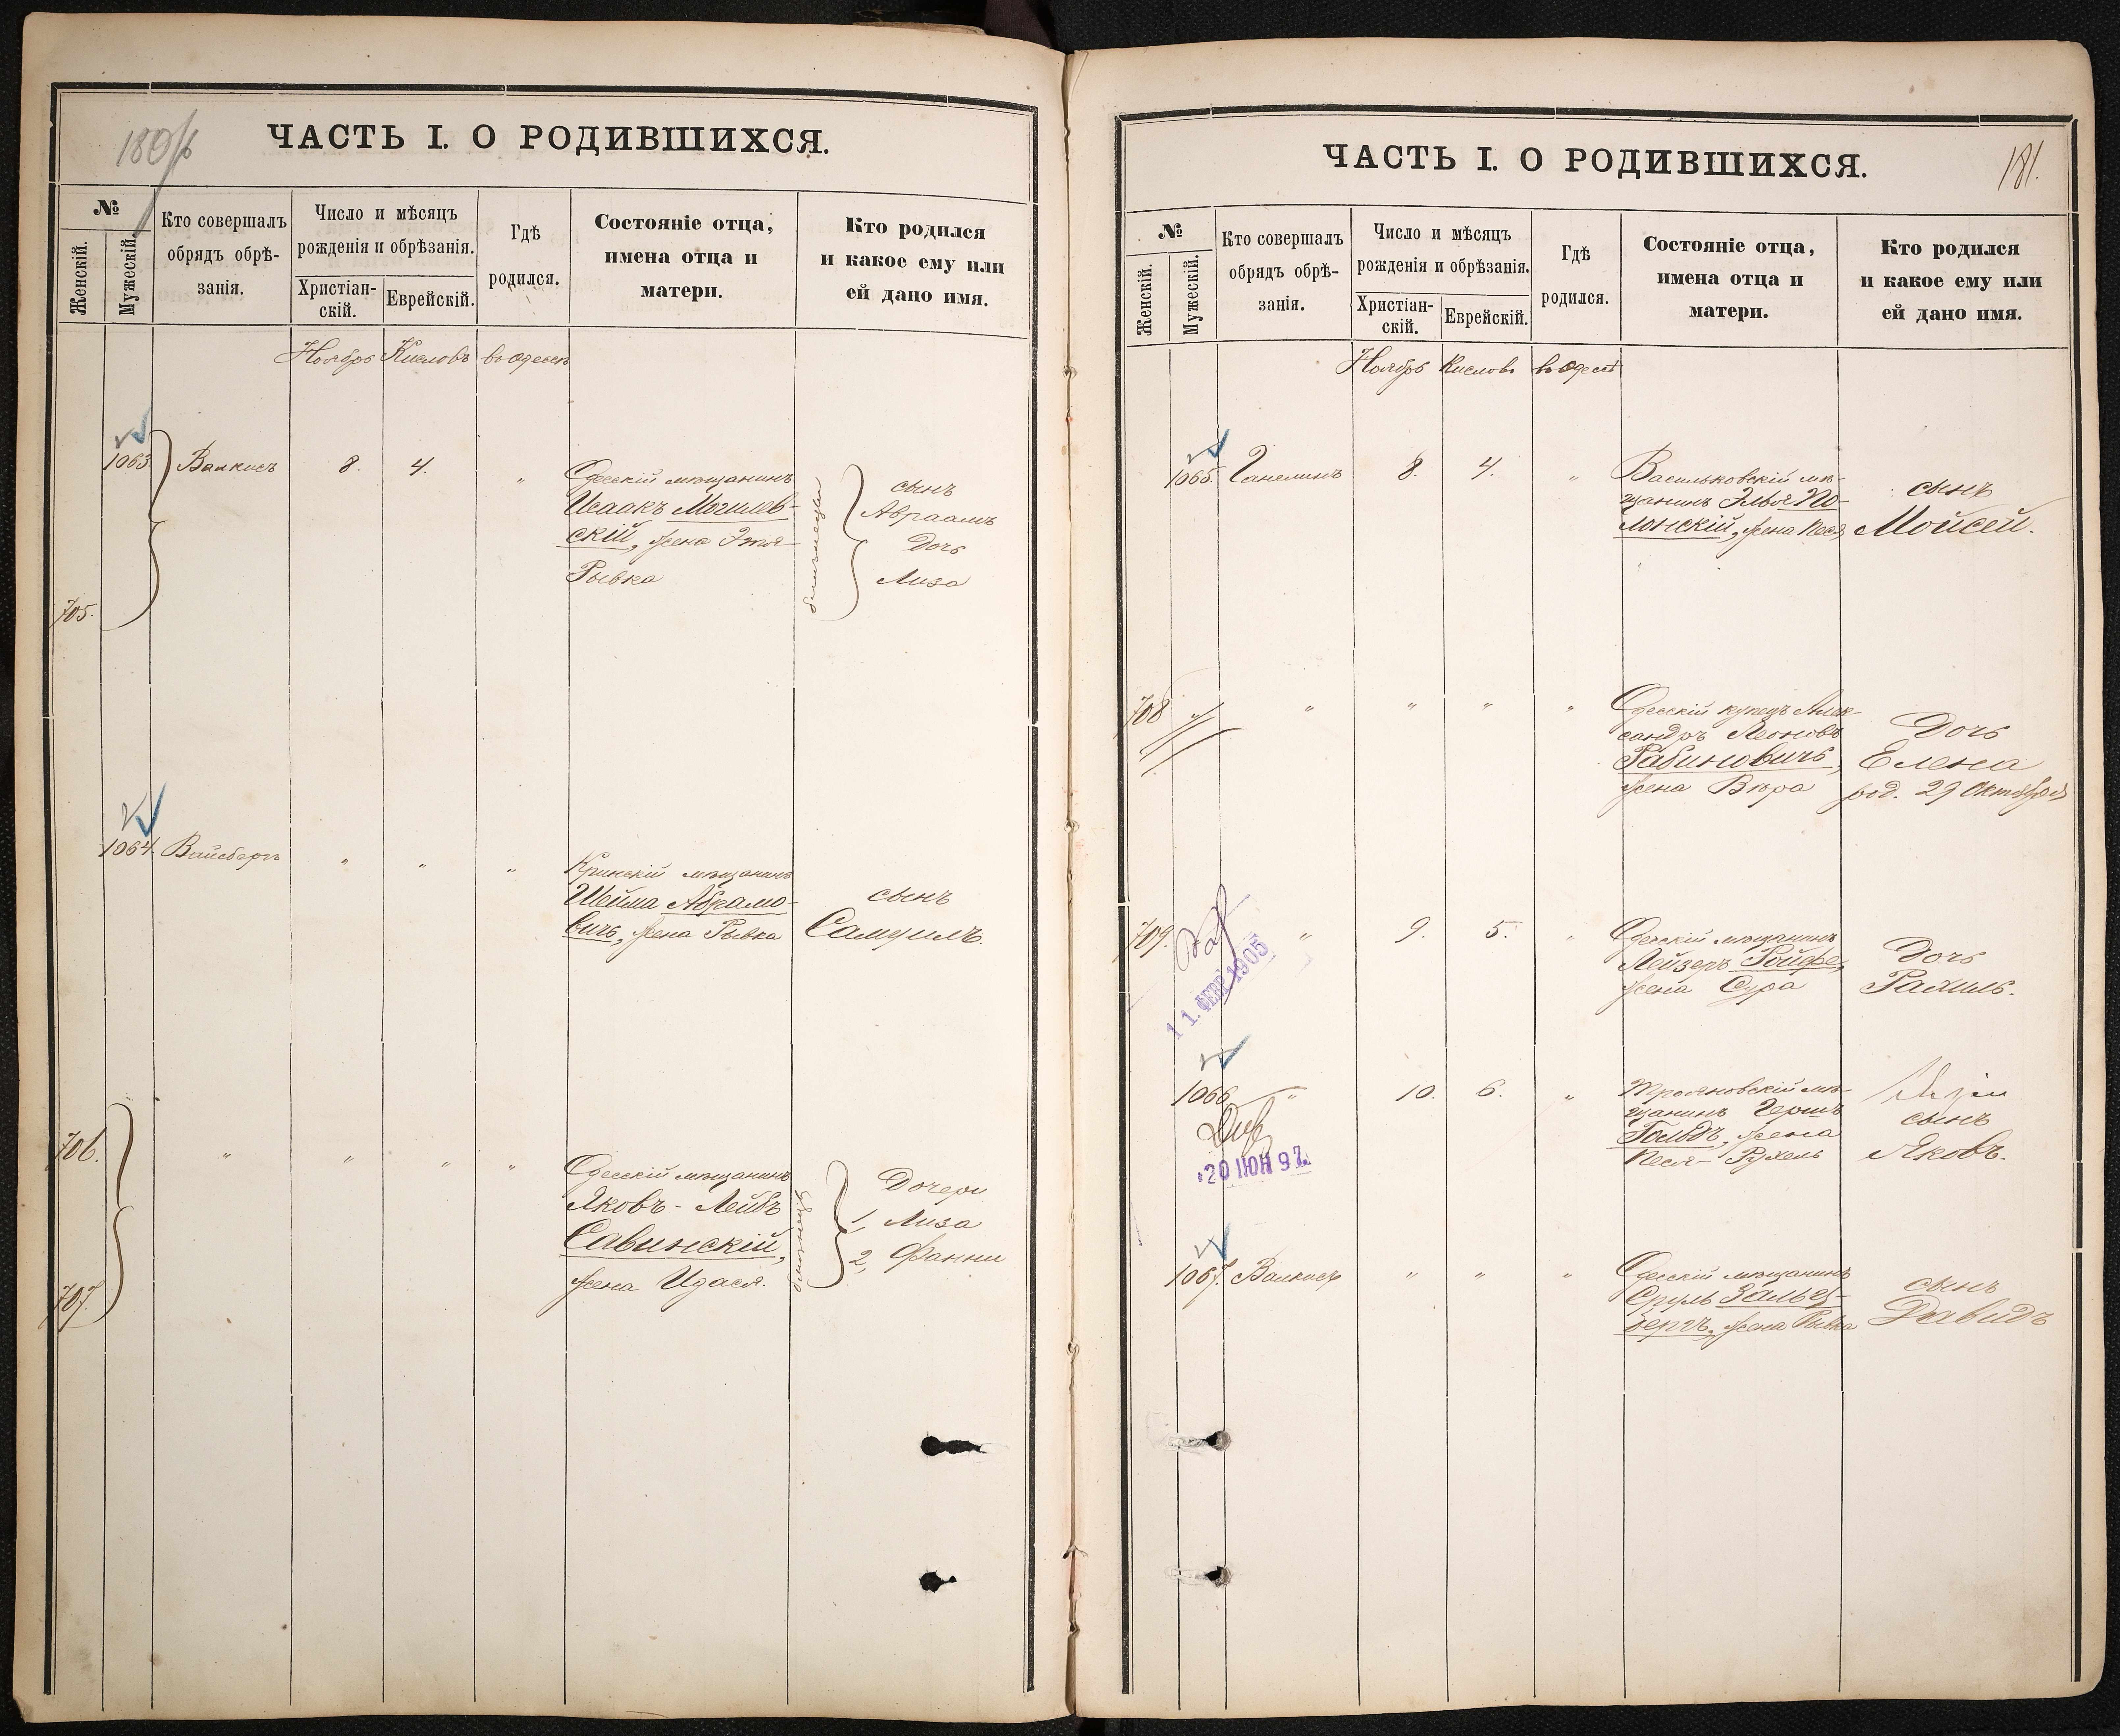 180
ЧАСТЬ I. О РОДИВШИХСЯ.
№
Женскій.
Мужескій.
Кто совершалъ
обрядъ обрѣ-
занія.
Число и мѣсяцъ
рожденія и обрѣзанія.
Христіан-
скій.
Еврейскій.
Гдѣ
родился.
Состояніе отца,
имена отца и
матери.
Кто родился
и какое ему или
ей дано имя.
Ноябрь Кислевъ въ Одессѣ
1063. Валкисъ 8. 4. "
705.
Одесскій мѣщанинъ
Исаакъ Могилев-
скій, жена
Рывка
близнецы
сынъ
Авраамъ
Дочь
Лиза
1064. Вайсбергъ " " "
Кринскій мѣщанинъ
Шейма Абрамо-
вичъ, жена Рывка
сынъ
Самуилъ.
706. " " " "
707.
Одесскій мѣщанинъ
Яковъ-Лейбъ
Савинскій,
жена Идася.
близнецы
Дочери
1, Лиза
2, Фанни
ЧАСТЬ I. О РОДИВШИХСЯ.
181.
№
Женскій.
Мужескій.
Кто совершалъ
обрядъ обрѣ-
занія.
Число и мѣсяцъ
рожденія и обрѣзанія.
Христіан-
скій.
Еврейскій.
Гдѣ
родился.
Состояніе отца,
имена отца и
матери.
Кто родился
и какое ему или
ей дано имя.
Ноябрь Кислевъ въ Одессѣ
1065. Ганелинъ 8. 4. "
Васильковскій мѣ-
щанинъ Эльья По-
лонскій, жена Песя
сынъ
Мойсей.
708 " " " "
Одесскій купецъ Алек-
сандръ Леоновъ
Рабиновичъ,
жена Вѣра
Дочь
Елена
род. 29 Октября
709. " 9. 5. "
11. ФЕВР 1905
Одесскій мѣщанинъ
Лейзеръ Ройфе,
жена Сура
Дочь
Рахиль.
1066 " 10. 6. "
20 ІЮН 97.
Трояновскій мѣ-
щанинъ Гершъ
Гольдъ, жена
Песя-Рухель
сынъ
Яковъ.
1067. Валкисъ " " "
Одесскій мѣщанинъ
Сруль Зальц-
бергъ, жена Рывка
сынъ
Давидъ